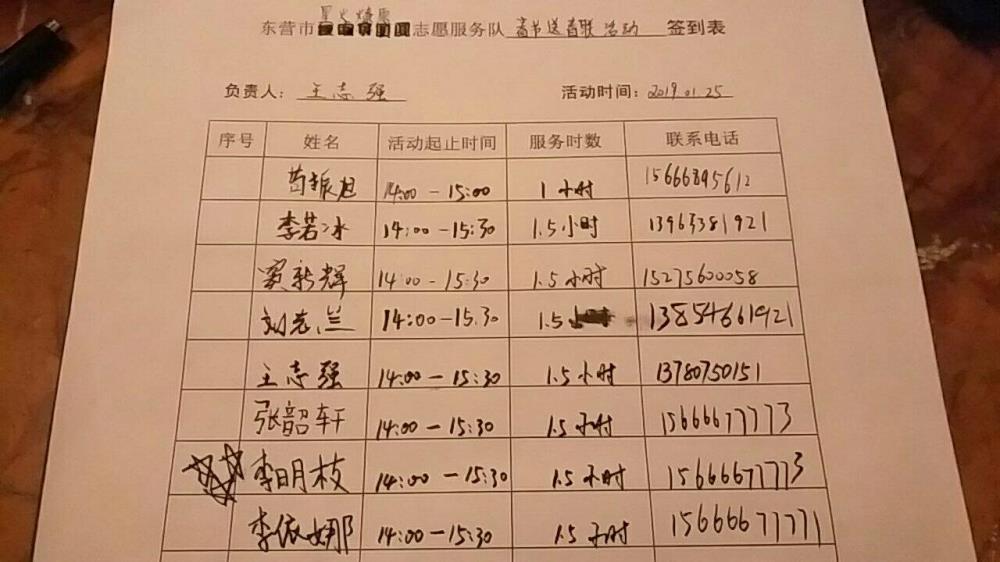 星火燎原
东营市志愿服务队 送春联活动 签到表
负责人: 王志强 活动时间: 2019.01.25
序号 姓名 活动起止时间 服务时数 联系电话
苗振旭 14:00-15:00 1小时 15666895612
李若冰 14:00-15:30 1.5小时 13963381921
窦新辉 14:00-15:30 1.5小时 15275600058
刘志兰 14:00-15.30 1.5 13854661921
王志强 14:00-15:30 1.5小时 13780750151
张韶轩 14:00-15:30 1.5小时 15666677773
李明枝 14:00-15:30 1.5小时 15666677773
李依娜 14:00-15:30 1.5小时 15666677771